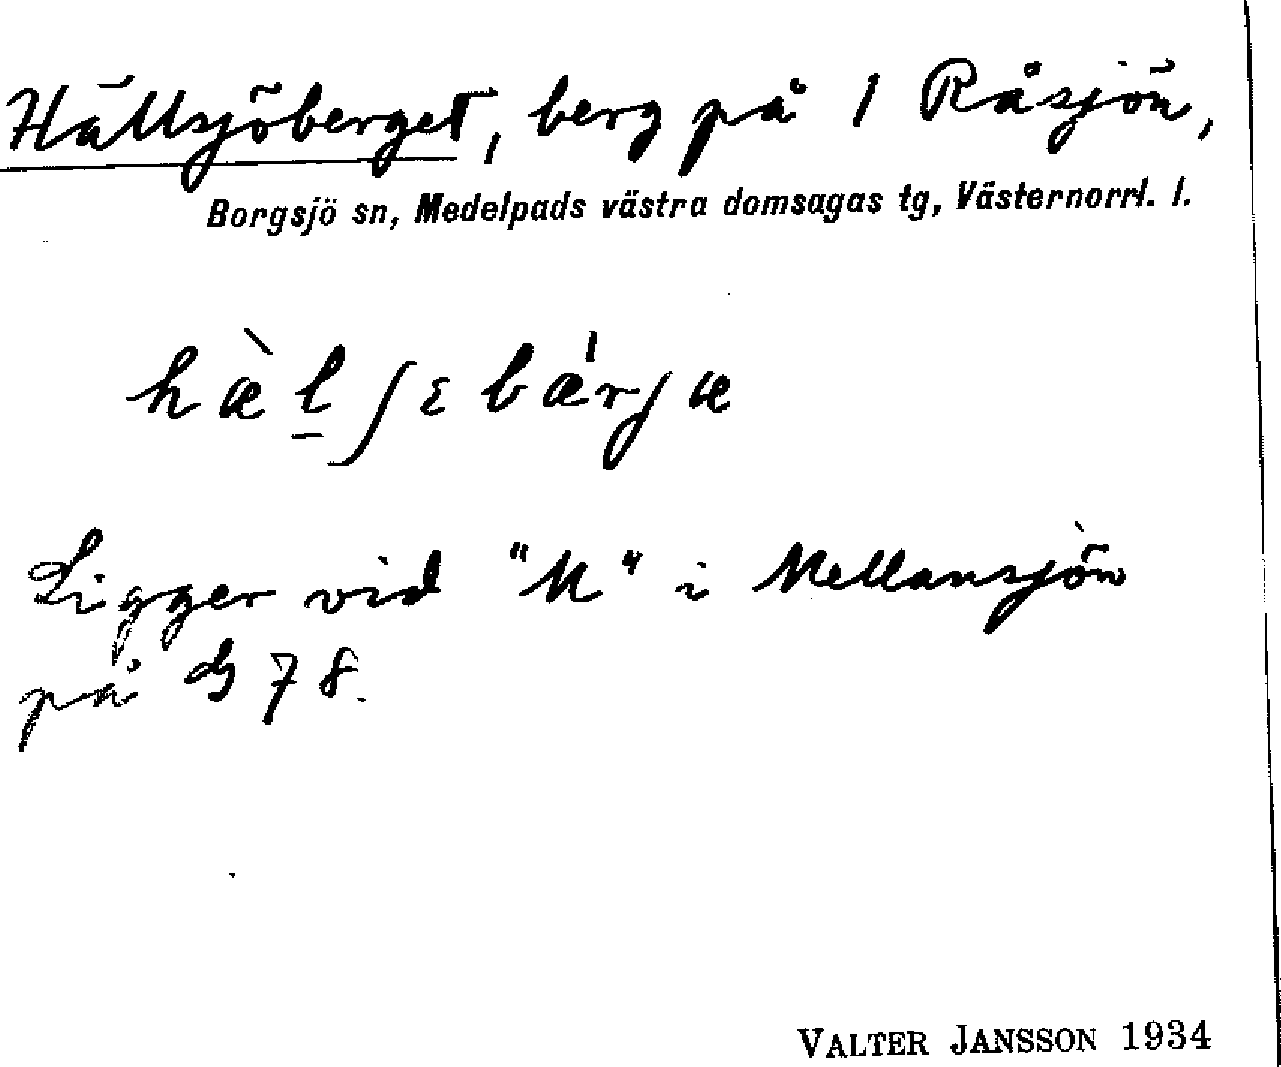 Hällsjöberget, berg på 1 Råsjön,
Borgsjö sn, Medelpads västra domsagas tg, Västernorrl. l.
hæ̀l̠ʃɛbǽrjæ
Ligger vid "M" i Mellansjön
på G 78.
VALTER JANSSON 1934